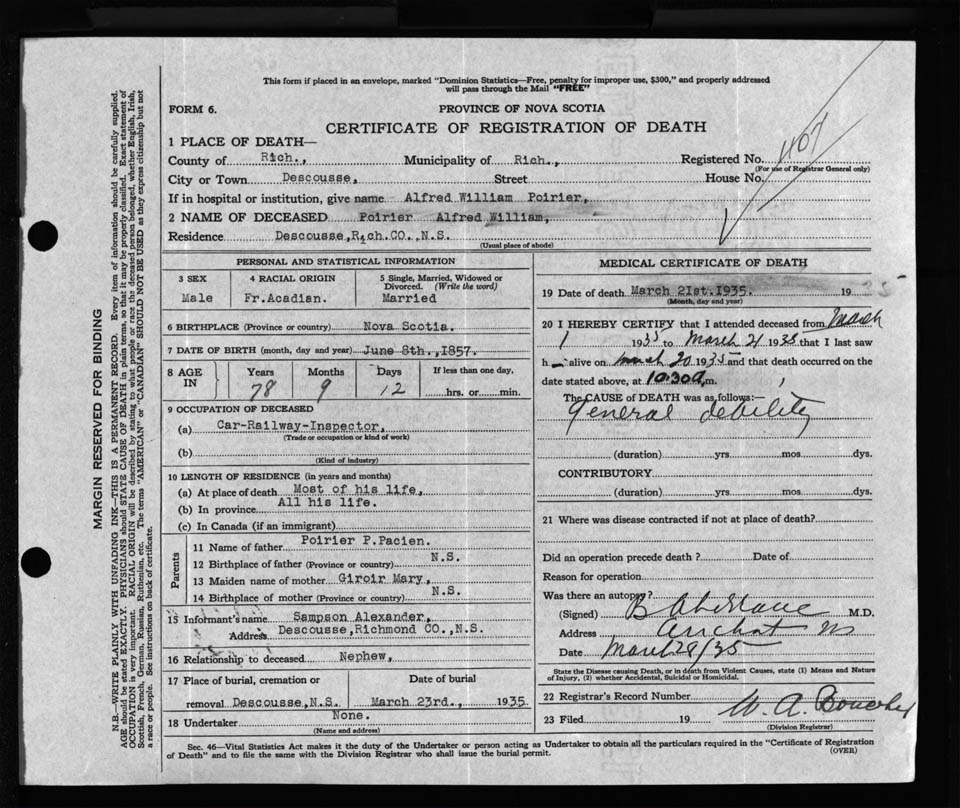 This form if placed in an envelope, marked "Dominion Statistics—Free, penalty for improper use, $300," and properly addressed
will pass through the Mail "FREE"
FORM 6.
PROVINCE OF NOVA SCOTIA
CERTIFICATE OF REGISTRATION OF DEATH
1 PLACE OF DEATH—
County of Rich., Municipality of Rich., Registered No. 407
(For use of Registrar General only)
City or Town Descousse, Street House No.
If in hospital or institution, give name Alfred William Poirier,
2 NAME OF DECEASED Poirier Alfred William,
Residence Descousse,Rich.CO.,N.S.
(Usual place of abode)
PERSONAL AND STATISTICAL INFORMATION
3 SEX 4 RACIAL ORIGIN 5 Single, Married, Widowed or
Divorced. (Write the word)
Male Fr.Acadian. Married
6 BIRTHPLACE (Province or country) Nova Scotia.
7 DATE OF BIRTH (month, day and year) June 8th.,1857.
8 AGE IN Years Months Days If less than one day,
78 9 12 hrs. or min.
9 OCCUPATION OF DECEASED
(a) Car-Railway-Inspector,
(Trade or occupation or kind of work)
(b)
(Kind of industry)
10 LENGTH OF RESIDENCE (in years and months)
(a) At place of death Most of his life,
(b) In province All his life.
(c) In Canada (if an immigrant)
Parents
11 Name of father Poirier P.Pacien.
12 Birthplace of father (Province or country) N.S.
13 Maiden name of mother Giroir Mary,
14 Birthplace of mother (Province or country) N.S.
15 Informant's name Sampson Alexander,
Address Descousse,Richmond CO.,N.S.
16 Relationship to deceased Nephew,
17 Place of burial, cremation or Date of burial
removal Descousse,N.S. March 23rd., 1935
18 Undertaker None.
(Name and address)
MEDICAL CERTIFICATE OF DEATH
19 Date of death March 21st.1935. 19 35
(Month, day and year)
20 I HEREBY CERTIFY that I attended deceased from March
1 1935 to March 21 1935 that I last saw
h alive on March 20 1935 and that death occurred on the
date stated above, at 10.30 a.m.
The CAUSE of DEATH was as follows:—
General debility
(duration) yrs mos dys.
CONTRIBUTORY
(duration) yrs mos dys.
21 Where was disease contracted if not at place of death?
Did an operation precede death ? Date of
Reason for operation
Was there an autopsy?
(Signed) M.D.
Address Arichat NS
Date March 28/35
State the Disease causing Death, or in death from Violent Causes, state (1) Means and Nature
of Injury, (2) whether Accidental, Suicidal or Homicidal.
22 Registrar's Record Number
23 Filed 19 W. A.
(Division Registrar)
Sec. 46—Vital Statistics Act makes it the duty of the Undertaker or person acting as Undertaker to obtain all the particulars required in the "Certificate of Registration
of Death" and to file the same with the Division Registrar who shall issue the burial permit.
(OVER)
MARGIN RESERVED FOR BINDING
N.B.—WRITE PLAINLY WITH UNFADING INK—THIS IS A PERMANENT RECORD. Every item of information should be carefully supplied.
AGE should be stated EXACTLY. PHYSICIANS should STATE CAUSE OF DEATH in plain terms, so that it may be properly classified. Exact statement of
OCCUPATION is very important. RACIAL ORIGIN will be described by stating to what people or race the deceased person belonged, whether English, Irish,
Scottish, French, German, Russian, Ruthenian, etc. The terms "AMERICAN" or "CANADIAN" SHOULD NOT BE USED as they express citizenship but not
a race or people. See instructions on back of certificate.